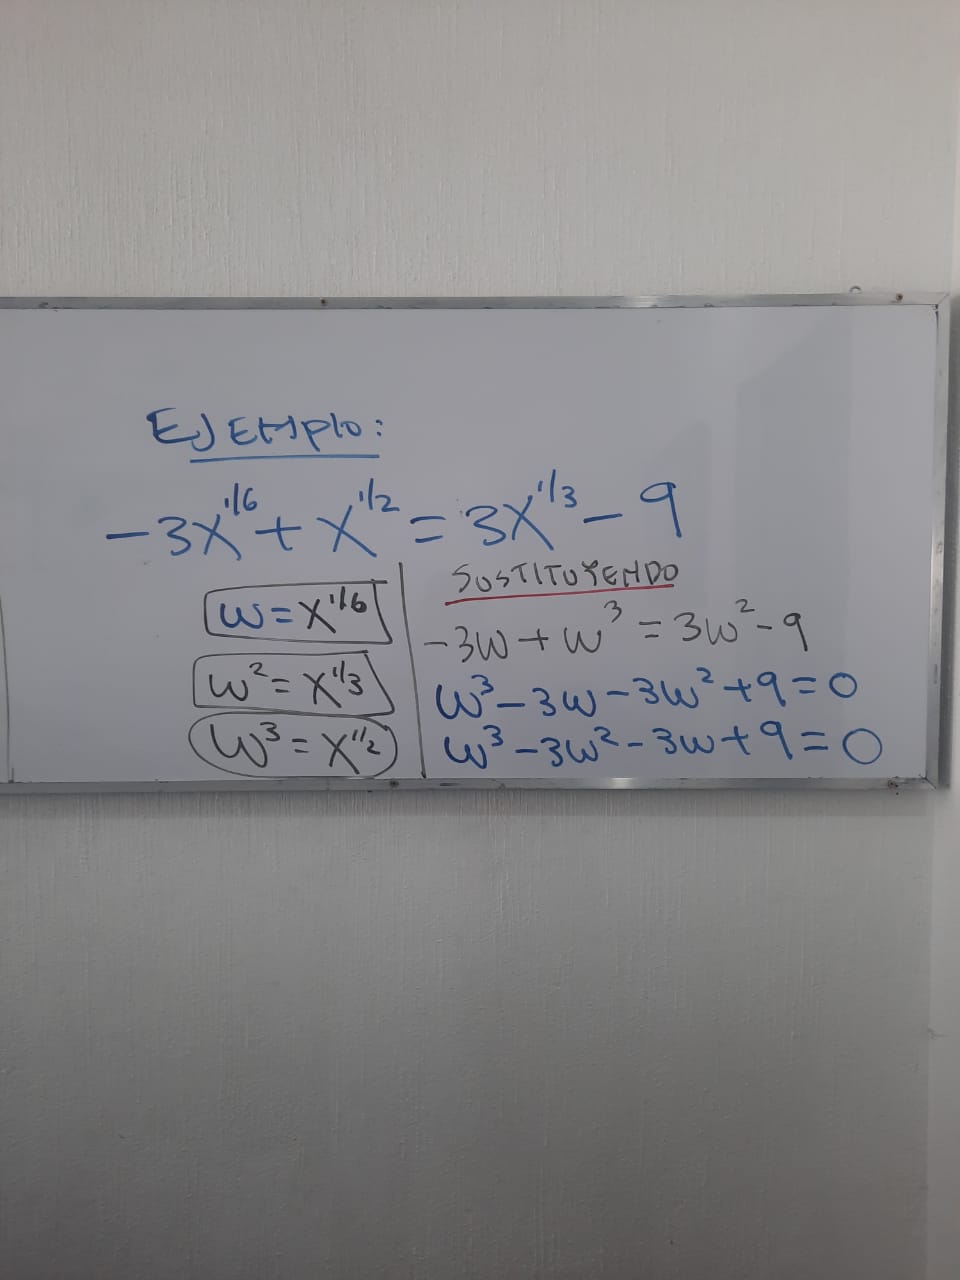 EJEMPLO:
-3x^1/6 + x^1/2 = 3x^1/3 - 9
w = x^1/6
w^2 = x^1/3
w^3 = x^1/2
SUSTITUYENDO
-3w + w^3 = 3w^2 - 9
w^3 - 3w - 3w^2 + 9 = 0
w^3 - 3w^2 - 3w + 9 = 0